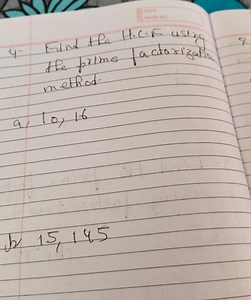 4. Find the H.C.F using
the prime factorization
method.
a, 10, 16
b 15, 145